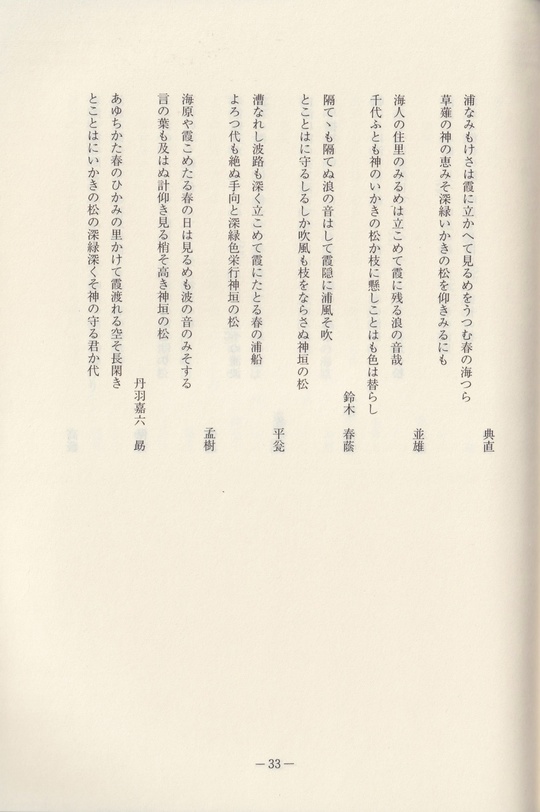 典直
浦なみもけさは霞に立かへて見るめをうつむ春の海つら
草薙の神の恵みそ深緑いかきの松を仰きみるにも
並雄
海人の住里のみるめは立こめて霞に残る浪の音哉
千代ふとも神のいかきの松か枝に懸しことはも色は替らし
鈴木 春蔭
隔てゝも隔てぬ浪の音はして霞隠に浦風そ吹
とことはに守るしるしか吹風も枝をならさぬ神垣の松
平瓮
漕なれし波路も深く立こめて霞にたとる春の浦船
よろつ代も絶ぬ手向と深緑色栄行神垣の松
孟樹
海原や霞こめたる春の日は見るめも波の音のみそする
言の葉も及はぬ計仰き見る梢そ高き神垣の松
丹羽嘉六 勗
あゆちかた春のひかみの里かけて霞渡れる空そ長閑き
とことはにいかきの松の深緑深くそ神の守る君か代
―33―